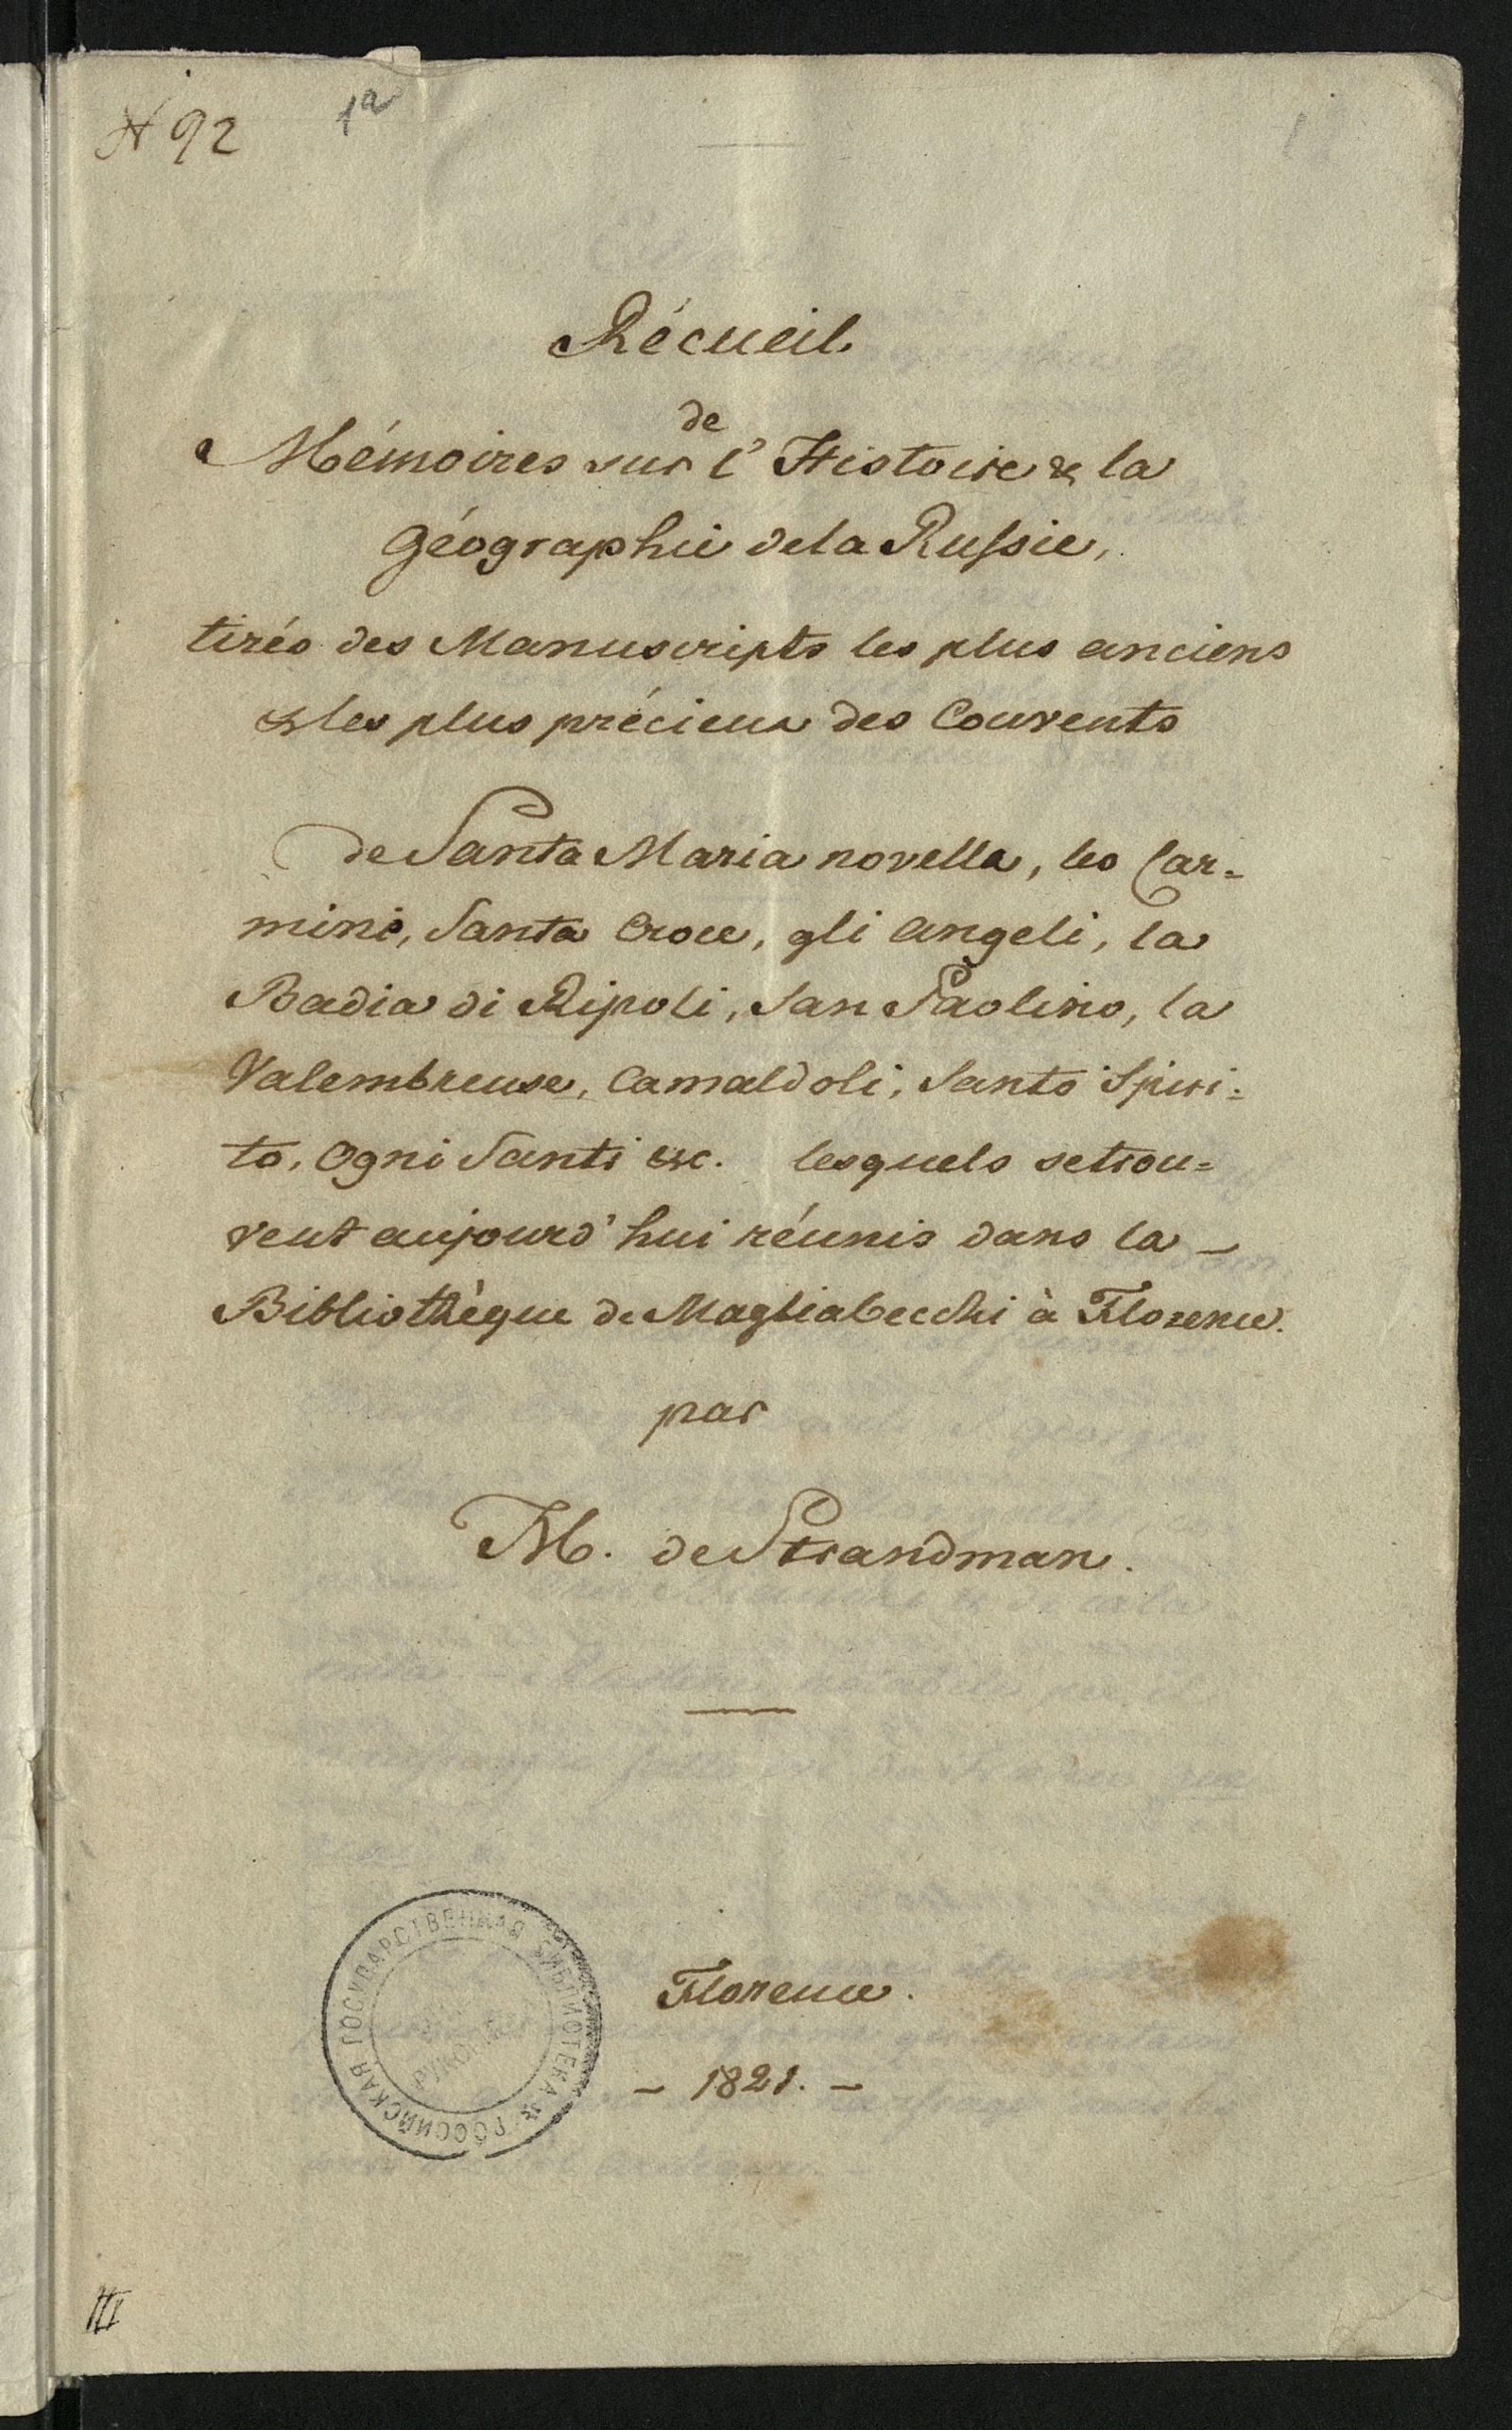 N 92
1a
Récueil
de
Mémoires sur l'Histoire & la
Géographie de la Russie,
tirés des Manuscripts les plus anciens
& les plus précieux des Couvents
de Santa Maria novella, les Car=
mini, Santa Croce, gli Angeli, la
Badia di Ripoli, San Paolino, la
Valembreuse, Camaldoli, Santo Spiri=
to, Ogni Santi &c. lesquels se trou=
vent aujourd'hui réunis dans la –
Bibliothèque de Magliabecchi à Florence.
par
M. de Strandman.
Florence.
– 1821. –
РОССИЙСКАЯ ГОСУДАРСТВЕННАЯ БИБЛИОТЕКА
III